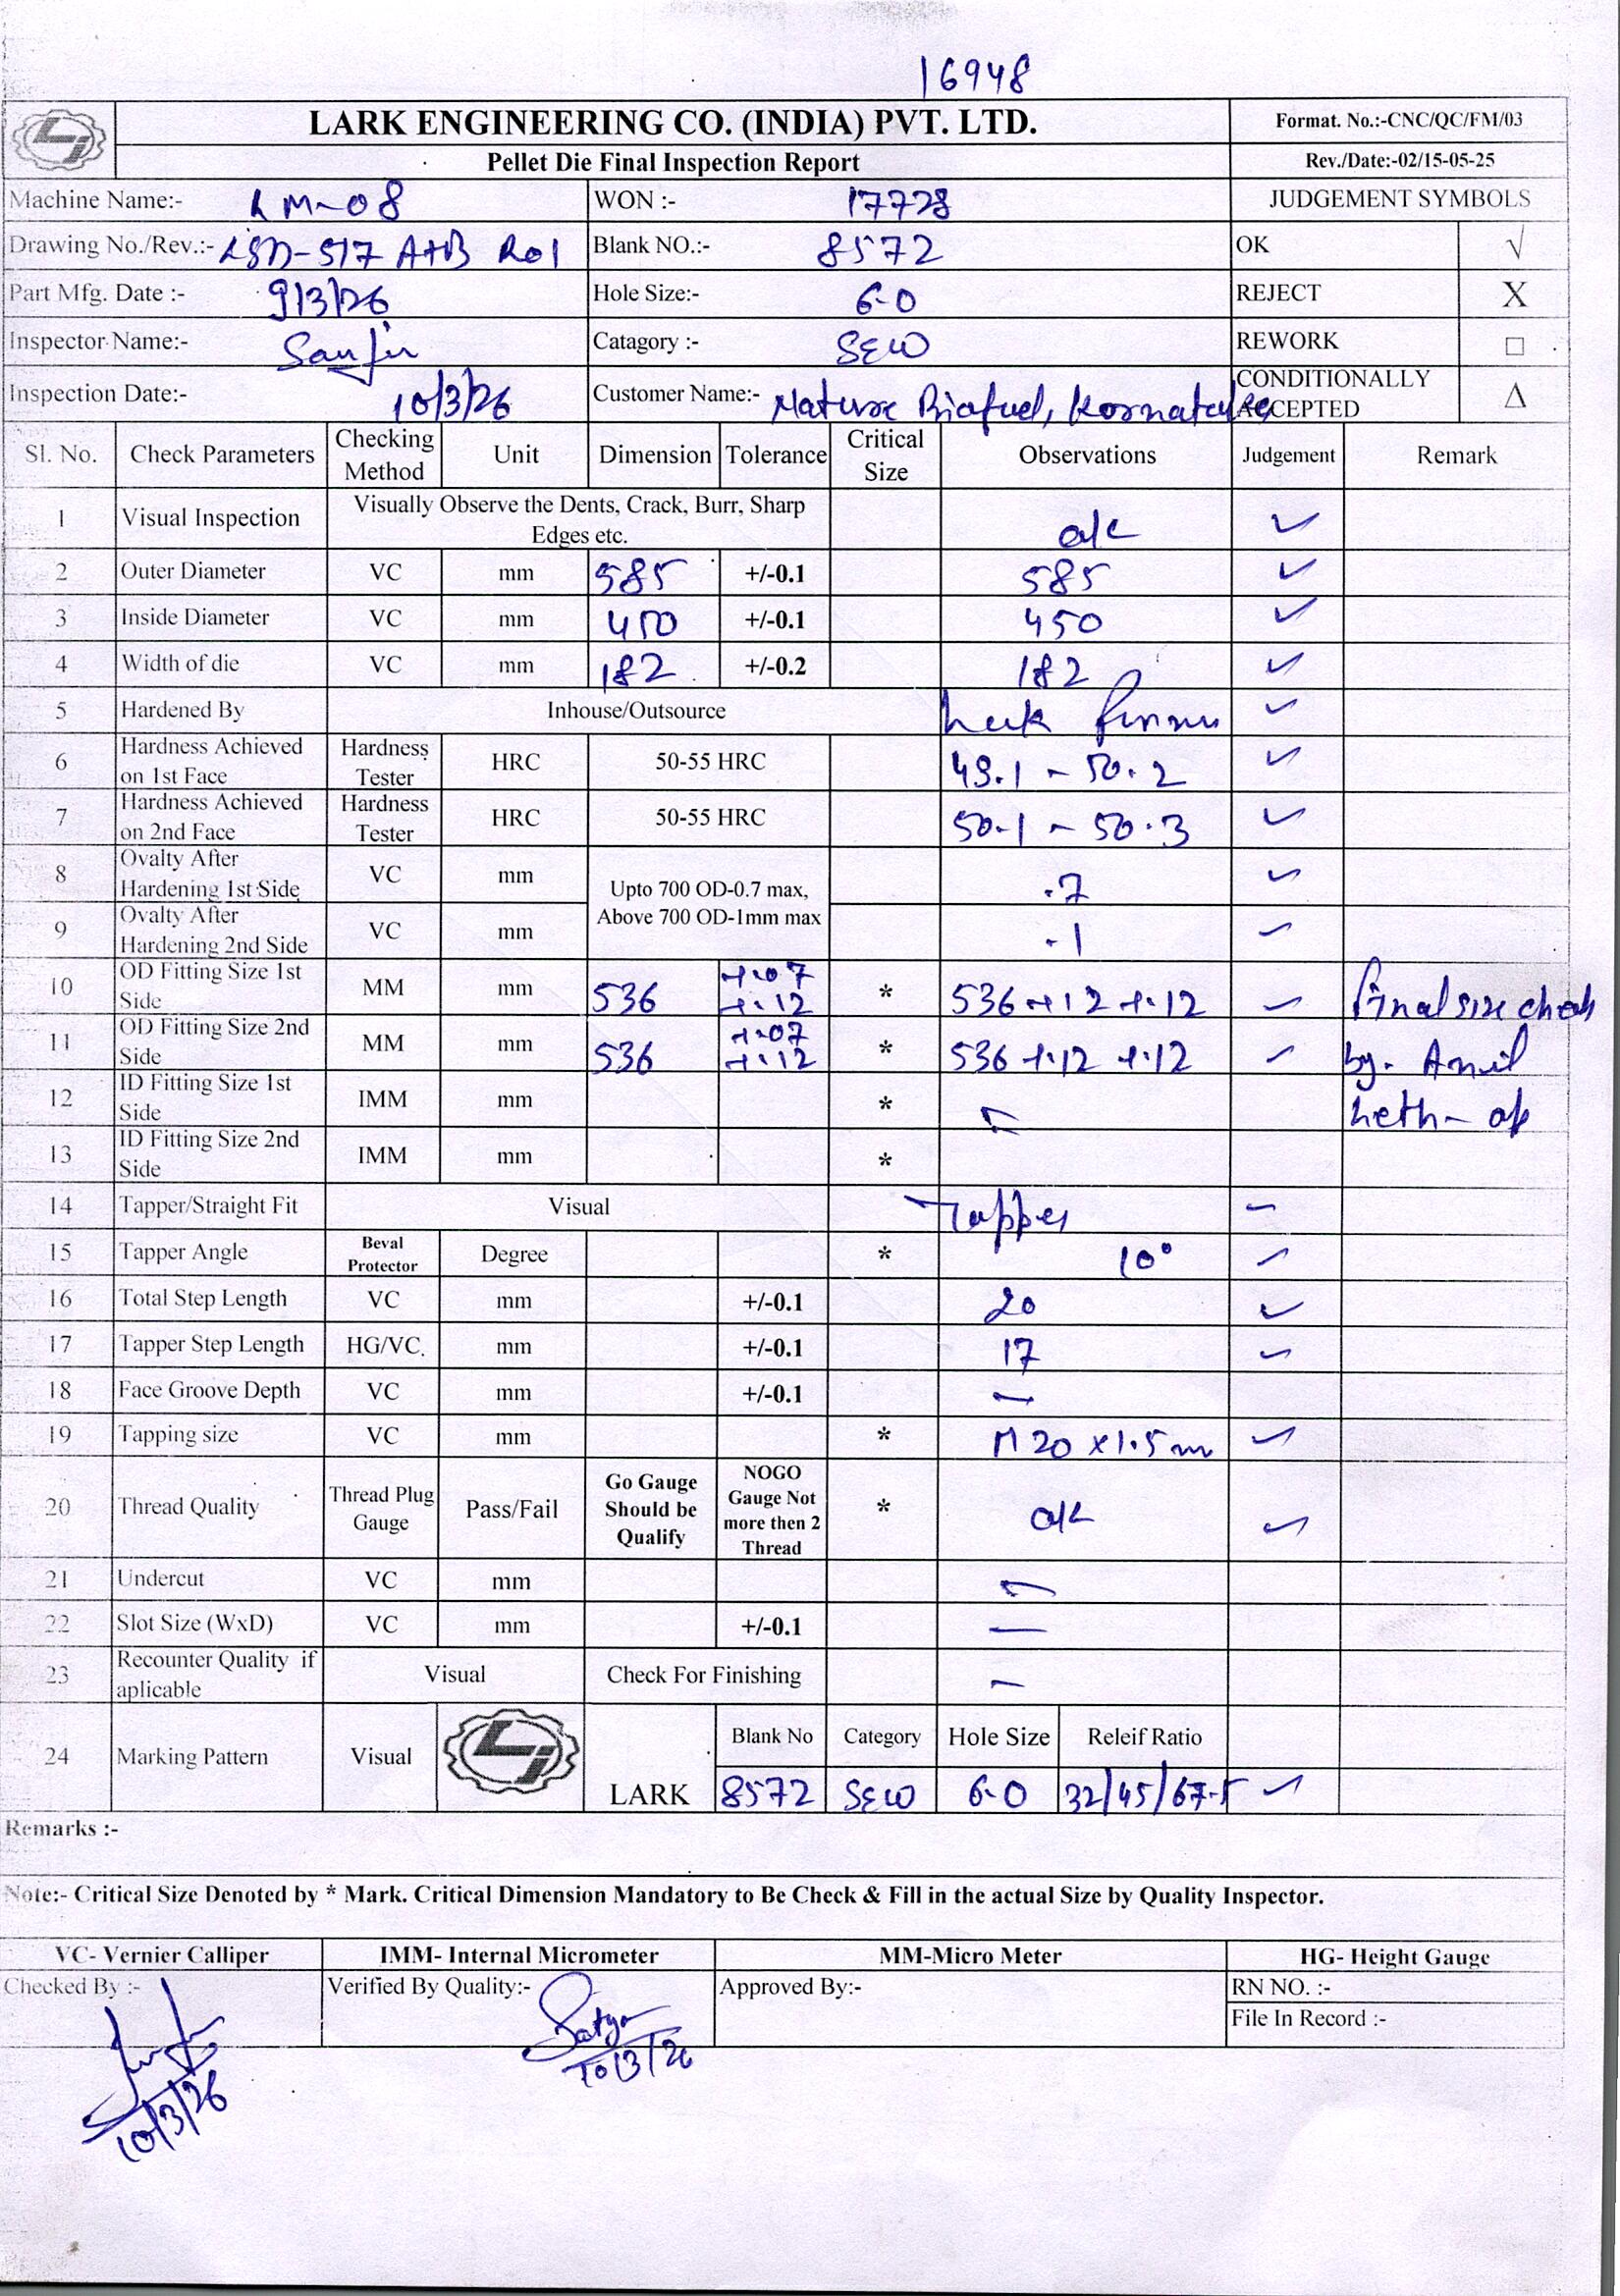 16948
LARK ENGINEERING CO. (INDIA) PVT. LTD.
Format. No.:-CNC/QC/FM/03
Pellet Die Final Inspection Report
Rev./Date:-02/15-05-25
Machine Name:- LM-08 WON :- 17728 JUDGEMENT SYMBOLS
Drawing No./Rev.:- LSD-517 A+B R01 Blank NO.:- 8572 OK √
Part Mfg. Date :- 9/3/26 Hole Size:- 6.0 REJECT X
Inspector Name:- Sanjiv Catagory :- SEW REWORK □
Inspection Date:- 10/3/26 Customer Name:- Nature Biofuel, CONDITIONALLY ACCEPTED Δ
Sl. No. Check Parameters Checking Method Unit Dimension Tolerance Critical Size Observations Judgement Remark
1 Visual Inspection Visually Observe the Dents, Crack, Burr, Sharp Edges etc. o/k ✓
2 Outer Diameter VC mm 585 +/-0.1 585 ✓
3 Inside Diameter VC mm 450 +/-0.1 450 ✓
4 Width of die VC mm 182 +/-0.2 182 ✓
5 Hardened By Inhouse/Outsource ✓
6 Hardness Achieved on 1st Face Hardness Tester HRC 50-55 HRC 49.1 ~ 50.2 ✓
7 Hardness Achieved on 2nd Face Hardness Tester HRC 50-55 HRC 50.1 ~ 50.3 ✓
8 Ovalty After Hardening 1st Side VC mm Upto 700 OD-0.7 max, Above 700 OD-1mm max .7 ✓
9 Ovalty After Hardening 2nd Side VC mm .1 ✓
10 OD Fitting Size 1st Side MM mm 536 +.07 +.12 * 536 +.12 +.12 ✓ final size check
11 OD Fitting Size 2nd Side MM mm 536 +.07 +.12 * 536 +.12 +.12 ✓ by. Anil
12 ID Fitting Size 1st Side IMM mm * — Leth- op
13 ID Fitting Size 2nd Side IMM mm *
14 Tapper/Straight Fit Visual Tapper ✓
15 Tapper Angle Beval Protector Degree * 10° ✓
16 Total Step Length VC mm +/-0.1 20 ✓
17 Tapper Step Length HG/VC. mm +/-0.1 17 ✓
18 Face Groove Depth VC mm +/-0.1 —
19 Tapping size VC mm * M20 x 1.5 m ✓
20 Thread Quality Thread Plug Gauge Pass/Fail Go Gauge Should be Qualify NOGO Gauge Not more then 2 Thread * o/k ✓
21 Undercut VC mm —
22 Slot Size (WxD) VC mm +/-0.1 —
23 Recounter Quality if aplicable Visual Check For Finishing —
24 Marking Pattern Visual LARK Blank No Category Hole Size Releif Ratio
8572 SEW 6.0 32/45/67.5 ✓
Remarks :-
Note:- Critical Size Denoted by * Mark. Critical Dimension Mandatory to Be Check & Fill in the actual Size by Quality Inspector.
VC- Vernier Calliper IMM- Internal Micrometer MM-Micro Meter HG- Height Gauge
Checked By :- Verified By Quality:- Satya Approved By:- RN NO. :-
File In Record :-
10/3/26
10/3/26